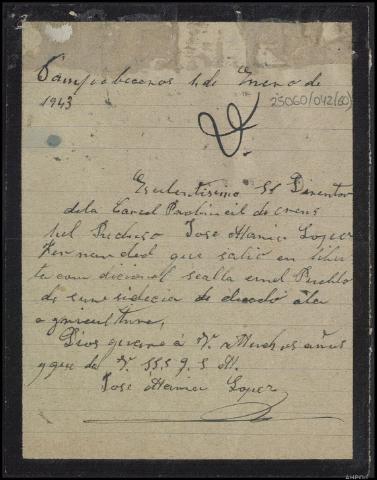 Campobecerros 1 de Enero de
1943
25060/042(80)
Eselentisimo Sr Direntor
dela Carcel Probincil de orens
El Recluso Jose Maria Lopez
Fernanded que salió en liber
ta con dicional sealla en el Pueblo
de su residecia de dicado ala
agricultura,
Dios guarde á V. Muchos años
y que da V. S.S.S. q. s M.
Jose Maria Lopez
AHPOu